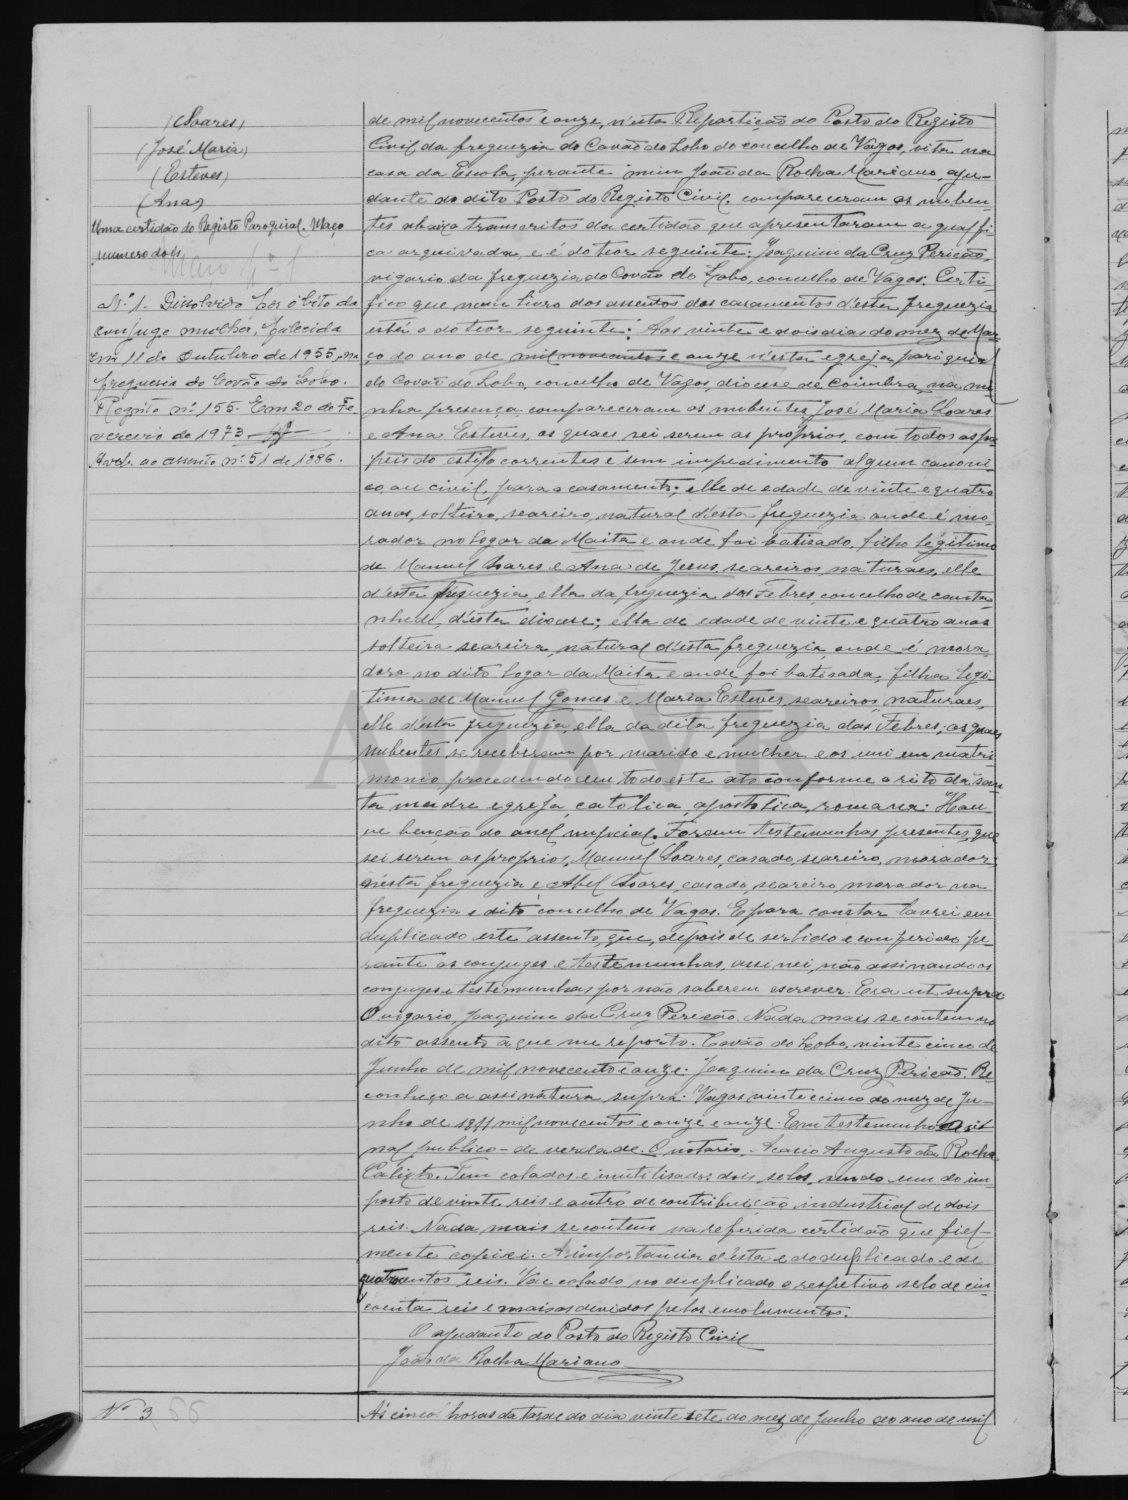 (Soares)
(José Maria)
(Esteves)
(Ana)
Uma certidão do Registo Paroquial. Maço
numero dois
Nº 1. Dissolvido por óbito da
conjuge mulher, falecida
em 11 de Outubro de 1955, na
freguesia do Covão do Lobo.
Registo nº 155. Em 20 de Fe
vereiro de 1973
Avdº. ao assento nº 51 de 1886.
de mil novecentos e onze, n'esta Repartição do Posto do Registo
Civil da freguezia do Covão do Lobo do concelho de Vagos, sita na
casa da Escola, perante mim João da Rocha Mariano, aju-
dante do dito Posto do Registo Civil, compareceram os nuben-
tes abaixo transcritos da certidão que apresentaram a qual fi
ca arquivada, e é do teor seguinte: Joaquim da Cruz Pericão,
vigario da freguezia do Covão do Lobo, concelho de Vagos. Certi-
fico que num livro dos assentos dos casamentos d'esta freguezia
está o do teor seguinte: Aos vinte e dois dias do mez de Mar
ço do ano de mil novecentos e onze n'esta egreja paroquial
do Covão do Lobo, concelho de Vagos, diocese de Coimbra, na mi
nha presença compareceram os nubentes José Maria Soares
e Ana Esteves, os quaes sei serem os proprios, com todos os pa
peis do estilo correntes e sem impedimento algum canoni-
co, ou civil, para o casamento; elle de edade de vinte e quatro
anos, solteiro, seareiro, natural d'esta freguezia onde é mo-
rador no logar da Maita e onde foi batisado, filho legitimo
de Manuel Soares e Ana de Jesus, seareiros, naturaes, elle
d'esta freguezia, ella da freguezia das Febres concelho de Canta
nhede, d'esta diocese; ella de edade de vinte e quatro anos
solteira seareira, natural d'esta freguezia onde é mora-
dora no dito logar da Maita e onde foi batisada, filha legi-
tima de Manuel Gomes e Maria Esteves, seareiros, naturaes,
elle d'esta freguezia, ella da dita freguezia das Febres; os quaes
nubentes se receberam por marido e mulher e os uni em matri
monio procedendo em todo este ato conforme o rito da san-
ta madre egreja catolica apostolica, romana: Hou-
ve benção do anel nupcial. Foram testemunhas presentes, que
sei serem os proprios, Manuel Soares, casado, seareiro, morador
n'esta freguezia e Abel Soares, casado, seareiro, morador na
freguezia e dito concelho de Vagos. E para constar lavrei em
duplicado este assento, que, depois de ser lido e conferido pe-
rante os conjuges e testemunhas, assinei, não assinando os
conjuges e testemunhas por não saberem escrever. Era ut supra
O vigario, Joaquim da Cruz Pericão. Nada mais se contem no
dito assento a que me reporto. Covão do Lobo, vinte cinco de
Junho de mil novecentos e onze. Joaquim da Cruz Pericão. Re-
conheço a assinatura supra. Vagos vinte e cinco do mez de Ju-
nho de 1911 mil novecentos e onze e onze. Em testemunho
nal publico - de verdade. O notario. Acacio Augusto da Rocha
Calixto. Tem colados e inutilisados dois selos, sendo um do im-
posto de vinte reis e outro de contribuição industrial de dois
reis. Nada mais se contem na referida certidão que fiel-
mente copiei. A importancia d'esta e do duplicado e de
quatrocentos reis. Vae colado no duplicado o respetivo selo de cin-
coenta reis e mais os devidos pelos emolumentos.
O ajudante do Posto do Registo Civil
João da Rocha Mariano
Nº 3 66
Ás cinco horas da tarde do dia vinte sete do mez de Junho do ano de mil